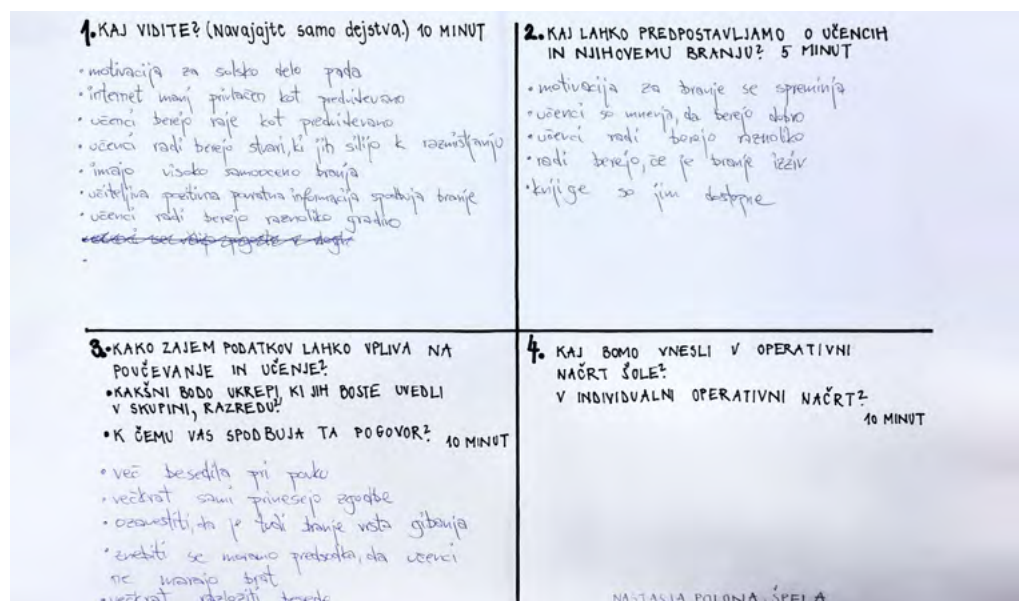 1. KAJ VIDITE? (Navajajte samo dejstva.) 10 MINUT
• motivacija za šolsko delo pada
• internet manj privlačen kot predvidevano
• učenci berejo raje kot predvidevano
• učenci radi berejo stvari, ki jih silijo k razmišljanju
• imajo visoko samooceno branja
• učiteljiva pozitivna povratna informacija spodbuja branje
• učenci radi berejo raznoliko gradivo
2. KAJ LAHKO PREDPOSTAVLJAMO O UČENCIH
IN NJIHOVEMU BRANJU? 5 MINUT
• motivacija za branje se spreminja
• učenci so mnenja, da berejo dobro
• učenci radi berejo raznoliko
• radi berejo, če je branje izziv
• knjige so jim dostopne
3. • KAKO ZAJEM PODATKOV LAHKO VPLIVA NA
POUČEVANJE IN UČENJE?
• KAKŠNI BODO UKREPI, KI JIH BOSTE UVEDLI
V SKUPINI, RAZREDU?
• K ČEMU VAS SPODBUJA TA POGOVOR? 10 MINUT
• več besedila pri pouku
• večkrat sami prinesejo zgodbe
• ozavestiti, da je tudi branje vrsta gibanja
• znebiti se moramo predsodka, da učenci
ne marajo brat
• večkrat razložiti besede
4. KAJ BOMO VNESLI V OPERATIVNI
NAČRT ŠOLE?
V INDIVIDUALNI OPERATIVNI NAČRT?
10 MINUT
NASTASJA, POLONA, ŠPELA